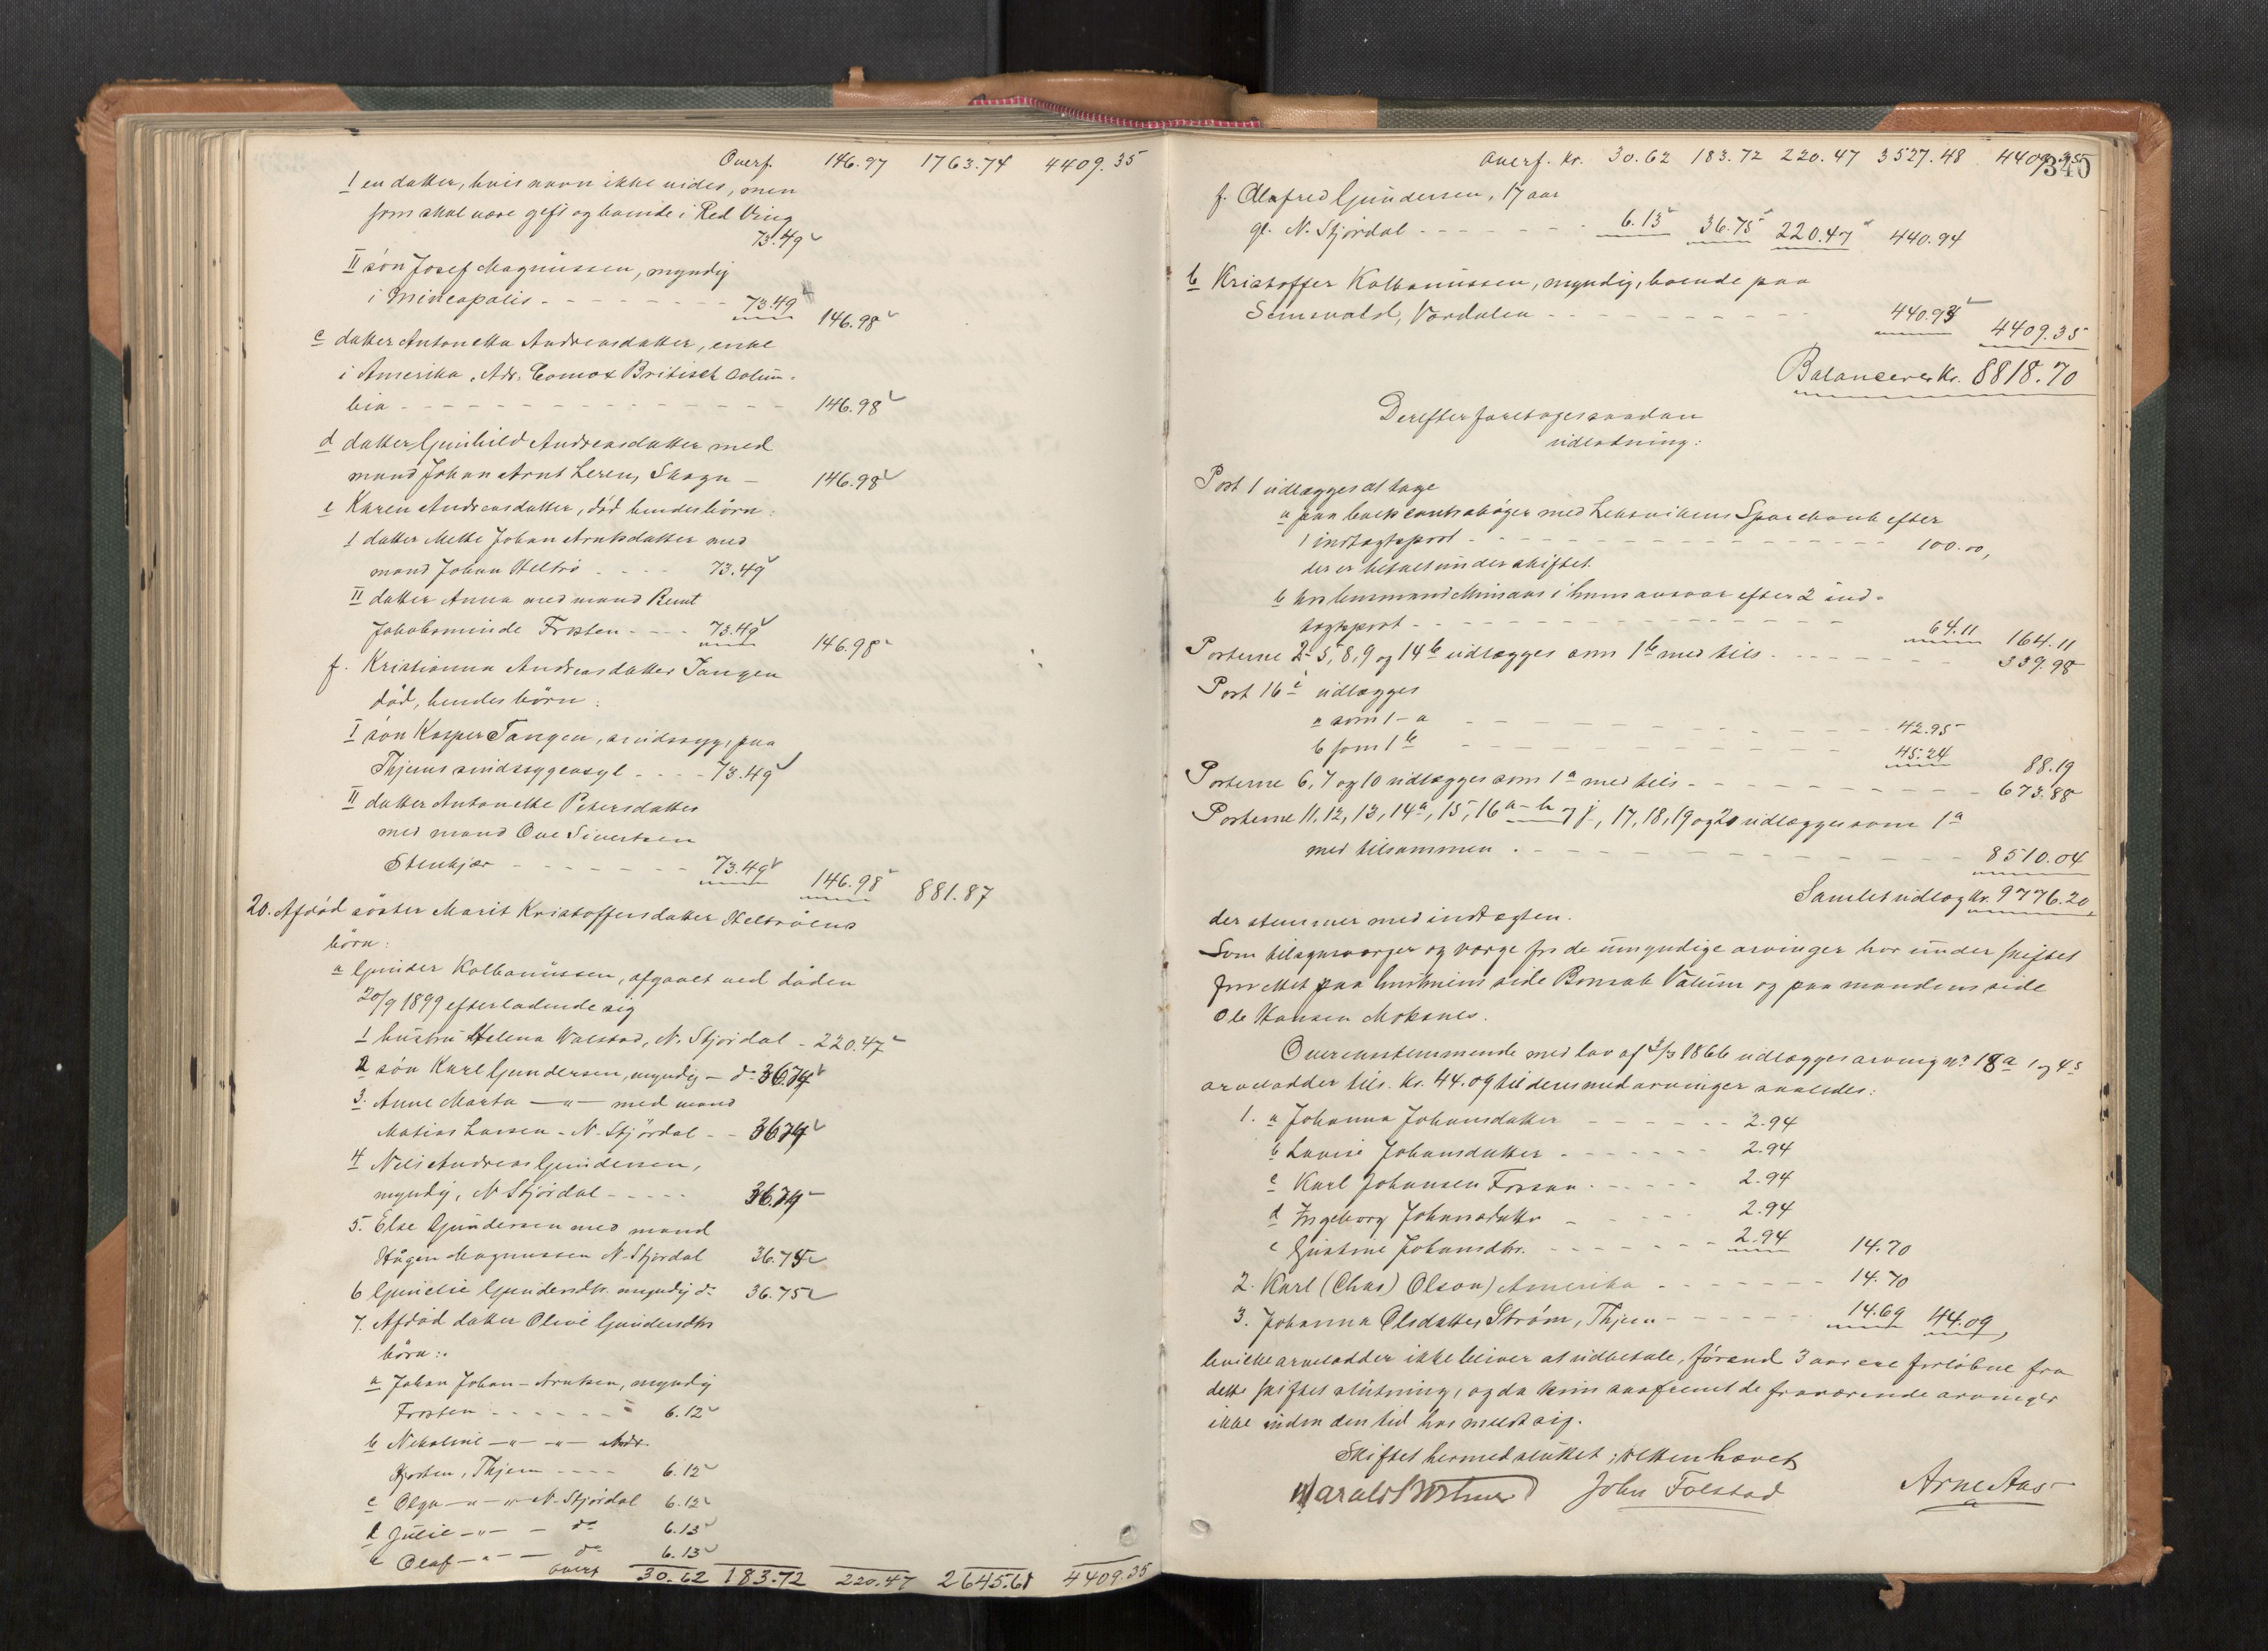 Overf. 146.97 1763.74 4409.35
I en datter, hvis navn ikke vides, men
som skal være gift og boende i Red Ving
73.49
II søn Josef Magnussen, myndig
i Mineapolis - - - 73.49 146.98
c datter Antonetta Andreasdatter, enke
i Amerika, Adr. Comox Britisch Colum-
bia - - - 146.98
d datter Gunhild Andreasdatter med
mand Johan Arnt Leren, Skogn - 146.98
e Karen Andreasdatter, död hendes börn:
I datter Mette Johan Arntsdatter med
mand Johan Heltrö - - - 73.49
II datter Anna med mand Bernt
Jakobsminde Frosten - - - 73.49 146.98
f. Kristianna Andreasdatter Tangen
död, hendes börn:
I sön Kasper Tangen, sindssyg, paa
Thjems sindssygeasyl - - - 73.49
II datter Antonette Petersdatter
med mand Ove Sivertsen
Stenkjær - - - 73.49 146.98 881.87
20. Afdöd söster Marit Kristoffersdatter Heltröens
börn:
a Gunder Kolbanussen, afgaaet ved döden
20/9 1899 efterladende sig
1 hustru Helena Valstad, N. Stjördal - 220.47
2 sön Karl Gundersen, myndig - do 36.74
3. Anne Marta -"- med mand
Matias Larsen - N. Stjördal - - 36.74
4 Nils Andreas Gundersen,
myndig, N Stjördal - - - 36.74
5. Else Gundersen med mand
Hågen Magnussen N. Stjördal 36.75
6 Gunelie Gundersdtr. myndig do 36.75
7. Afdöd datter Olive Gundersdtrs
börn:
a Johan Johan-Arntsen, myndig
Frosten - - - 6.12
b Nikoline -"- -"- Adr.
Thjem - - - 6.12
c Olga -"- -"- N. Stjördal 6.12
d Julie -"- - do 6.13
e Olaf -"- - do 6.13
overf 30.62 183.72 220.47 2645.61 4409.35
Overf. Kr. 30.62 183.72 220.47 3527.48 4409.35
340
f. Olafred Gundersen, 17 aar
gl. N. Stjördal - - - 6.13 36.75 220.47 440.94
b Kristoffer Kolbanussen, myndig, boende paa
Værdalen - - - 440.93 4409.35
Balancerer Kr. 8818.70
Derefter foretoges saadan
udlodning:
Post 1 udlægges at tage
a paa bankcontrabøger med Leksvikens Sparebank efter
1 indtægtspost - - - 100.00,
der er betalt under skiftet.
b hos lensmand Minsaas i hans ansvar efter 2 ind-
tægtspost - - - 64.11 164.11
Posterne 2-5, 8, 9 og 14b udlægges som 1b med tils. - - - 339.98
Post 16i udlægges
a som 1-a - - - 42.95
b som 1b - - - 45.24 88.19
Posterne 6, 7 og 10 udlægges som 1a med tils - - - 673.88
Posterne 11, 12, 13, 14a, 15, 16a-h og j, 17, 18, 19 og 20 udlægges som 1a
med tilsammen - - - 8510.04
Samlet udlæg Kr. 9776.20,
der stemmer med indtægten.
Som tilsynsværger og værge for de umyndige arvinger har under skiftet
paa hustruens side Bonsak Vatum og paa mandens side
Ole Hansen Moksnes.
Overensstemmende med lov af 3/3 1866 udlægges arving no 18a 1 og 4s
arvelodder tils. Kr. 44.09 til deres medarvinger saaledes:
1. a Johanna Johansdatter - - - 2.94
b Lovise Johansdatter - - - 2.94
c Karl Johansen Fossan - - - 2.94
d Ingeborg Johansdatter - - - 2.94
e Gustine Johansdtr. - - - 2.94 14.70
2. Karl (Chas) Olson) Amerika - - - 14.70
3. Johanna Olsdatter Strøm, Thjem - - - 14.69 44.09,
hvilke arvelodder ikke bliver at udbetale, förend 3 aar ere forlöbne fra
dette skiftes slutning, og da kun saafremt de fraværende arvinger
ikke inden den tid har meldt sig.
Skiftet hermed sluttet; retten hævet
Harald Bothner John Folstad Arne Aas